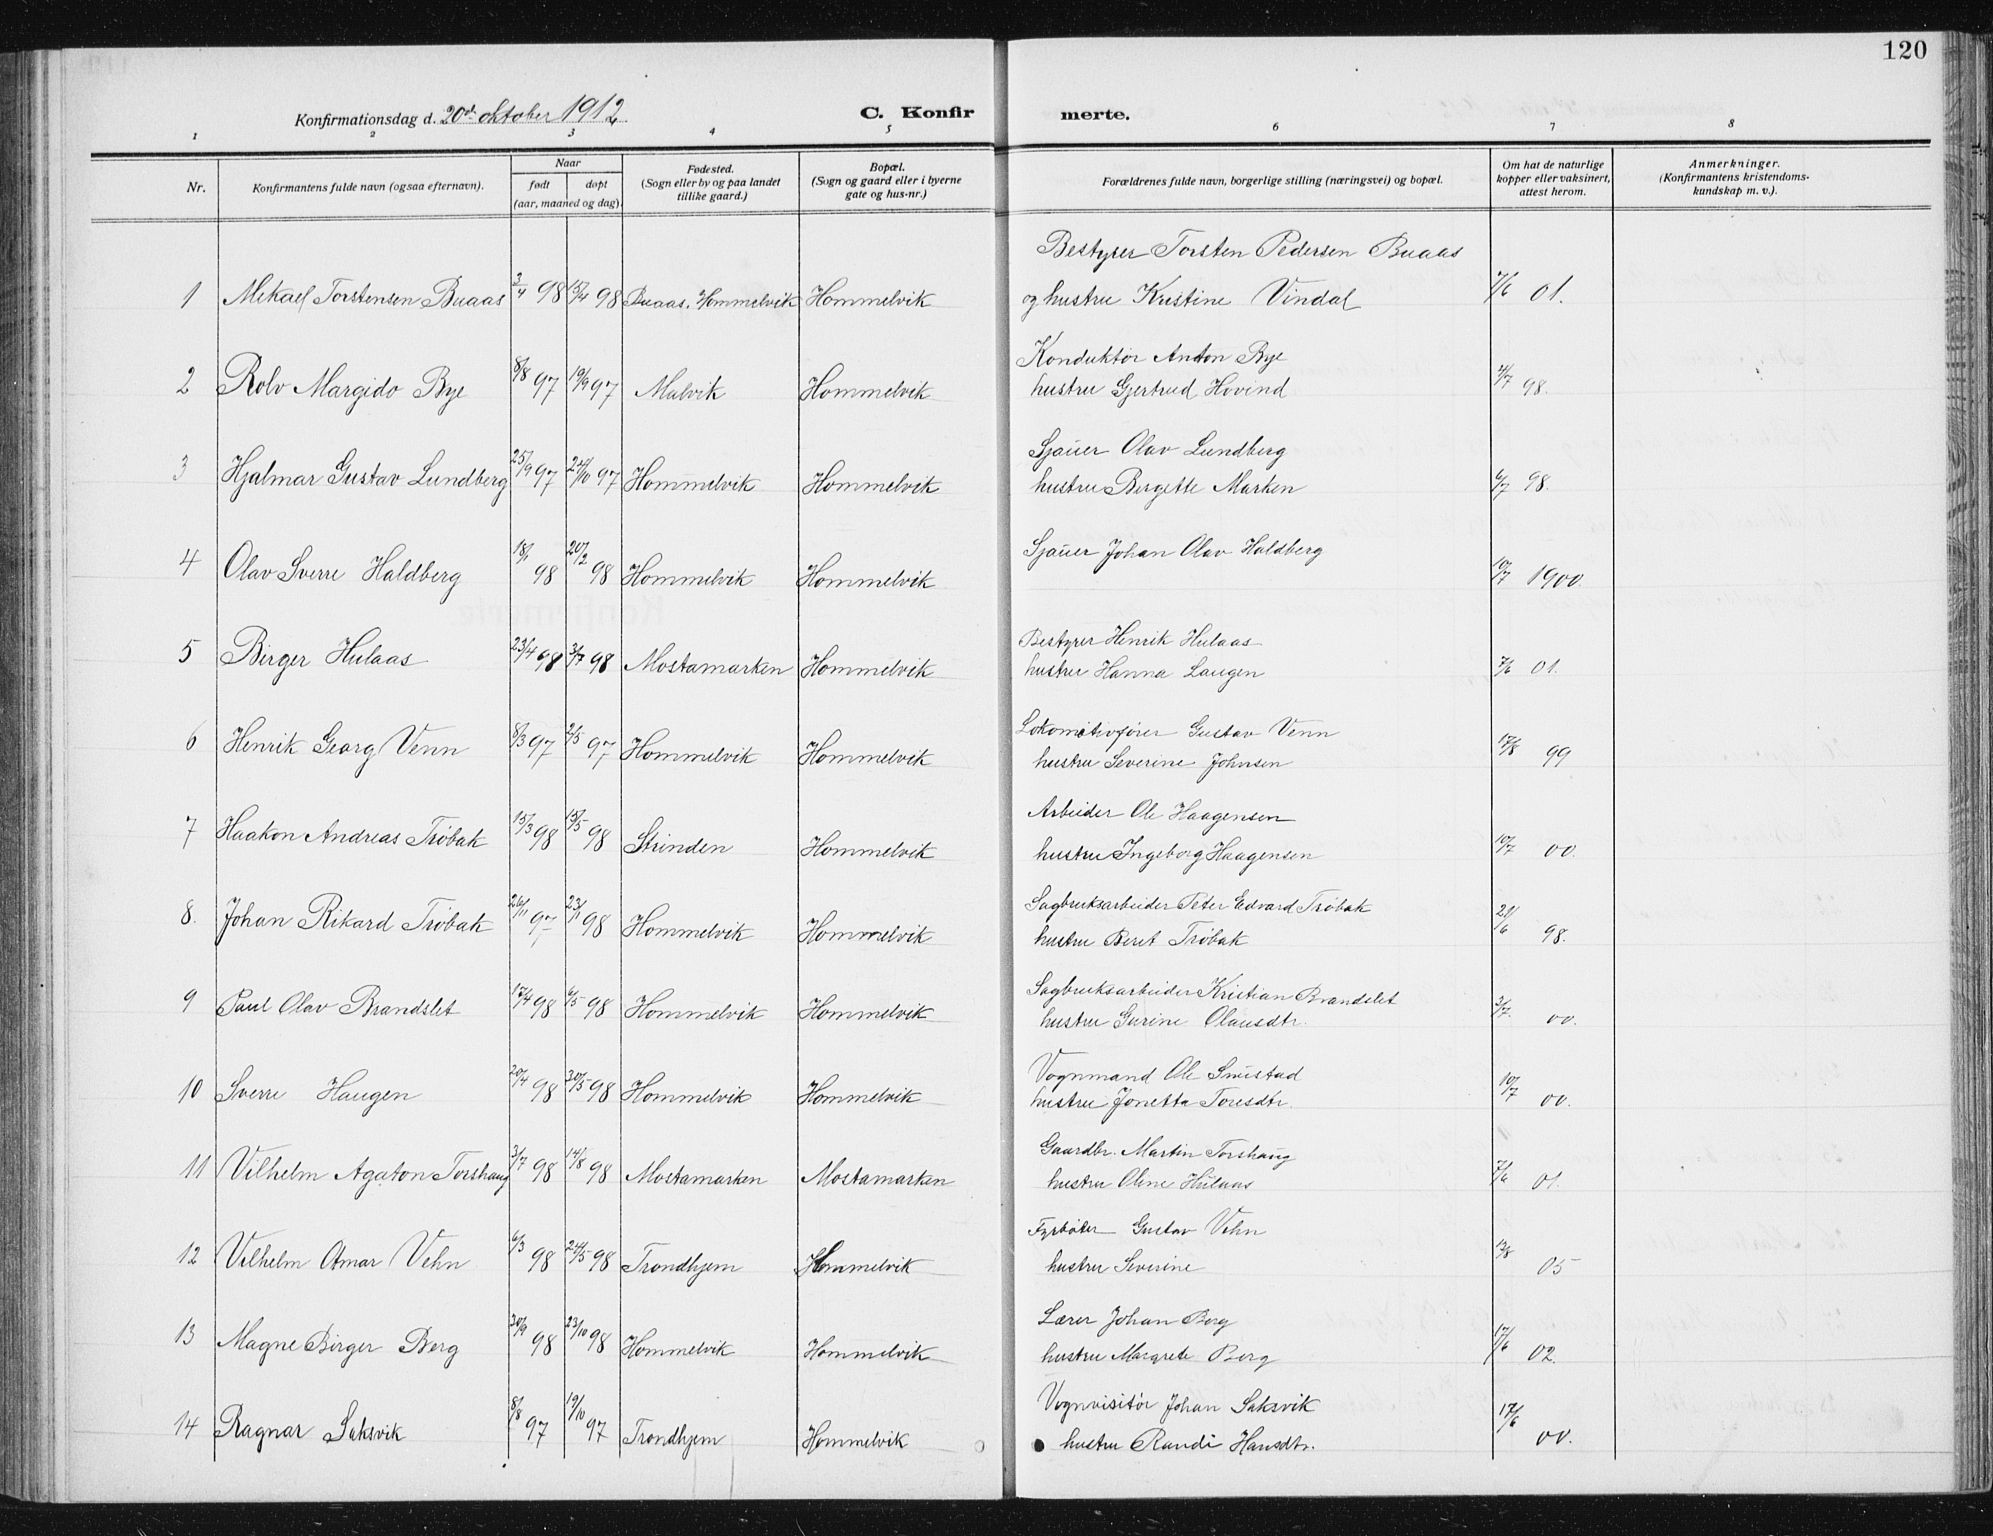 120
Konfirmationsdag d. 20de oktober 1912.
C. Konfirmerte.
1 2 3 4 5 6 7 8
Nr.
Konfirmantens fulde navn (ogsaa efternavn).
Naar
født døpt
(aar, maaned og dag).
Fødested.
(Sogn eller by og paa landet
tillike gaard.)
Bopæl.
(Sogn og gaard eller i byerne
gate og hus-nr.)
Forældrenes fulde navn, borgerlige stilling (næringsvei) og bopæl.
Om hat de naturlige
kopper eller vaksinert,
attest herom.
Anmerkninger.
(Konfirmantens kristendoms-
kundskap m. v.).
Bestyrer Torsten Pedersen Buaas
1 Mekael Torstensen Buaas 3/4 98 15/4 98 Buaas, Hommelvik Hommelvik og hustru Kristine Vindal 7/6 01.
Konduktør Anton Bye
2 Rolv Margido Bye 8/8 97 19/9 97 Malvik Hommelvik hustru Gjertrud Hovind 4/7 98.
Sjauer Olav Lundberg
3 Hjalmar Gustav Lundberg 25/9 97 24/10 97 Hommelvik Hommelvik hustru Bergitte Marken 6/7 98.
Sjauer Johan Olav Haldberg
4 Olav Sverre Haldberg 18/1 98 20/2 98 Hommelvik Hommelvik 10/7 1900.
Bestyrer Henrik Hulaas
5 Birger Hulaas 23/4 98 3/7 98 Mostamarken Hommelvik hustru Hanna Laugen 7/6 01.
Lokomotivfører Gustav Venn
6 Henrik Georg Venn 8/3 97 2/5 97 Hommelvik Hommelvik hustru Severine Johnsen 17/8 99
Arbeider Ole Haagensen
7 Haakon Andreas Trøbak 15/3 98 15/5 98 Strinden Hommelvik hustru Ingeborg Haagensen 10/7 00.
Sagbruksarbeider Peter Edvard Trøbak
8. Johan Rikard Trøbak 26/11 97 23/1 98 Hommelvik Hommelvik hustru Beret Trøbak 21/6 98.
Sagbruksarbeider Kristian Brandslet
9 Paul Olav Brandslet 17/4 98 6/5 98 Hommelvik Hommelvik hustru Gurine Olausdtr. 3/7. 00.
Vognmand Ole Snustad
10 Sverre Haugen 20/4 98 30/5 98 Hommelvik Hommelvik hustru Jonetta Toresdtr. 10/7 00.
Gaardbr. Martin Torshaug
11 Vilhelm Agaton Torshaug 3/7 98 14/8 98 Mostamarken Mostamarken hustru Oline Hulaas 7/6 01.
Fyrbøter Gustav Vehn
12 Vilhelm Otmar Vehn 6/3 98 24/5 98 Trondhjem Hommelvik hustru Severine 13/8 05
Lærer Johan Berg
13 Magne Birger Berg 30/9 98 23/10 98 Hommelvik Hommelvik hustru Margrete Berg 17/6 02.
Vognvisitør Johan Saksvik
14 Ragnar Saksvik 8/8 97 19/10 97 Trondhjem Hommelvik hustru Randi Hansdtr. 17/6 00.